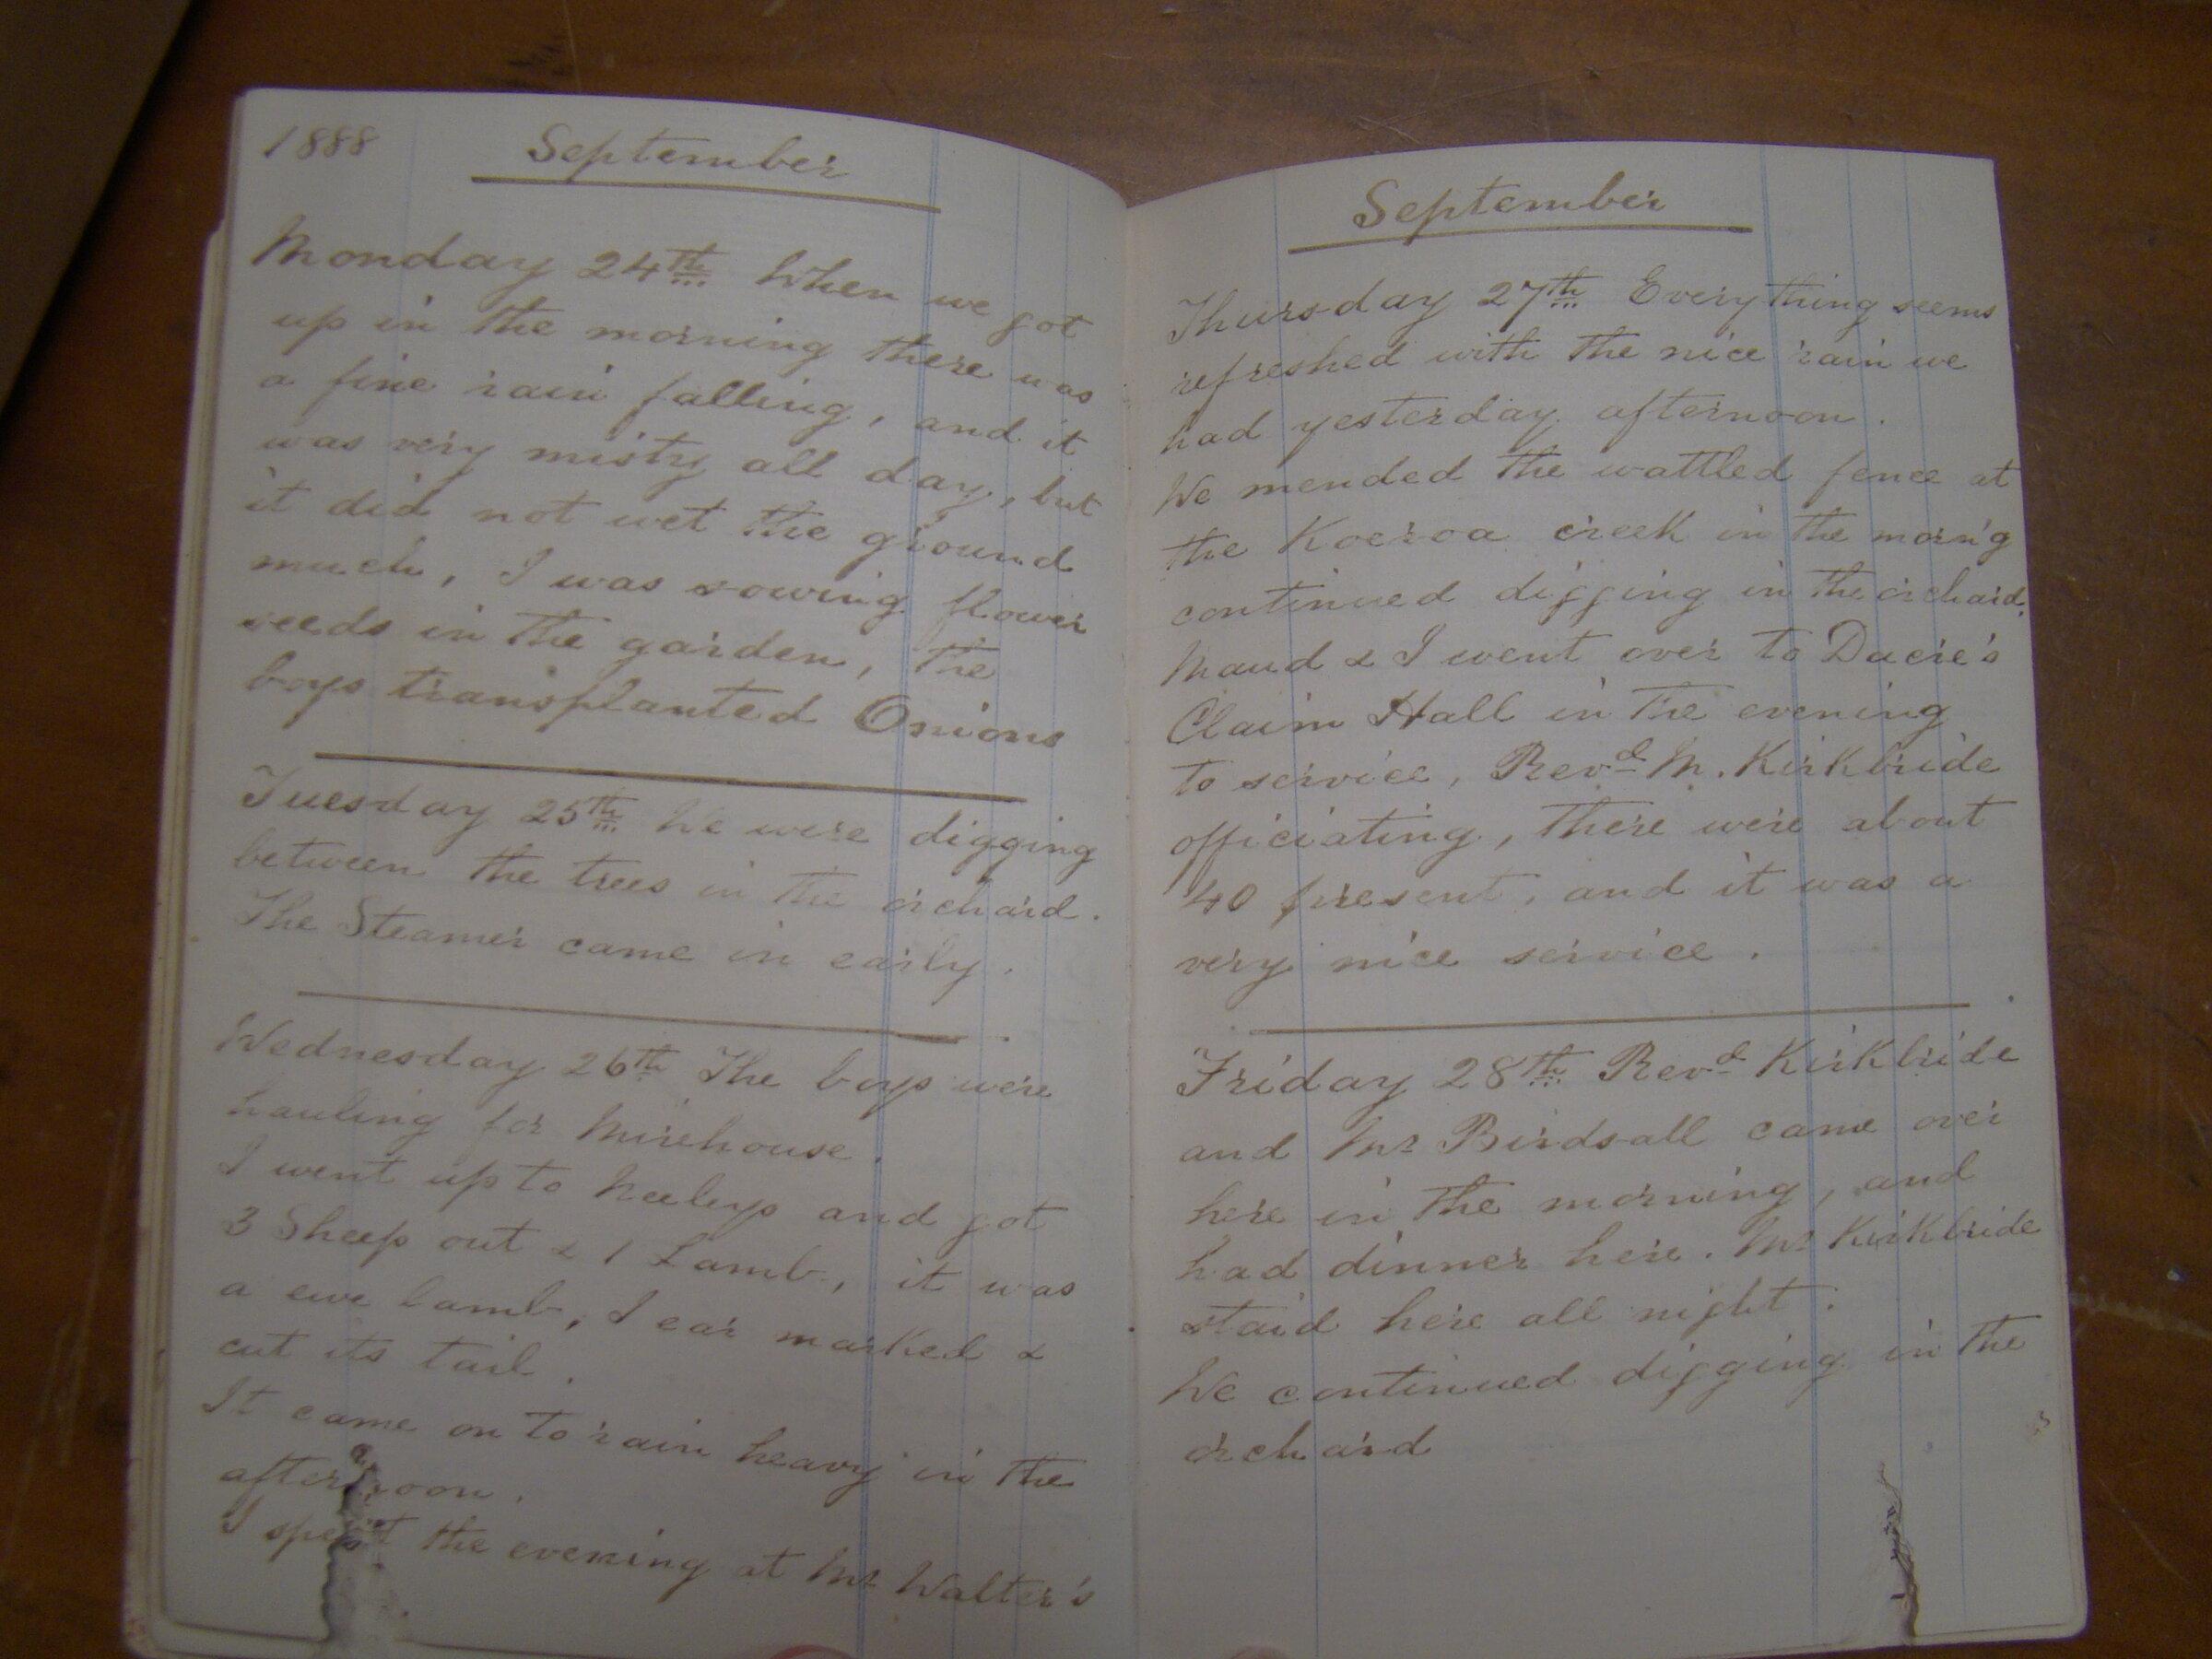 1888
September
Monday 24th When we got
up in the morning there was
a fine rain falling, and it
was very misty all day, but
it did not wet the ground
much, I was sowing flower
seeds in the garden, the
boys transplanted Onions
Tuesday 25th We were digging
between the trees in the orchard.
The Steamer came in early.
Wednesday 26th The boys were
hauling for Mirehouse.
I went up to Neeleys and got
3 Sheep out & 1 Lamb, it was
a ewe lamb, I ear marked &
cut its tail.
It came on to rain heavy in the
afternoon.
I spent the evening at Mr Walter's
September
Thursday 27th Everything seems
refreshed with the nice rain we
had yesterday afternoon.
We mended the wattled fence at
the Koeroa creek in the morn'g
continued digging in the orchard.
Maud & I went over to Dacre's
Claim Hall in the evening
to service, Revd M. Kirkbride
officiating, there were about
40 present, and it was a
very nice service.
Friday 28th Revd Kirkbride
and Mr Birdsall came over
here in the morning, and
had dinner here. Mr Kirkbride
staid here all night.
We continued digging in the
orchard